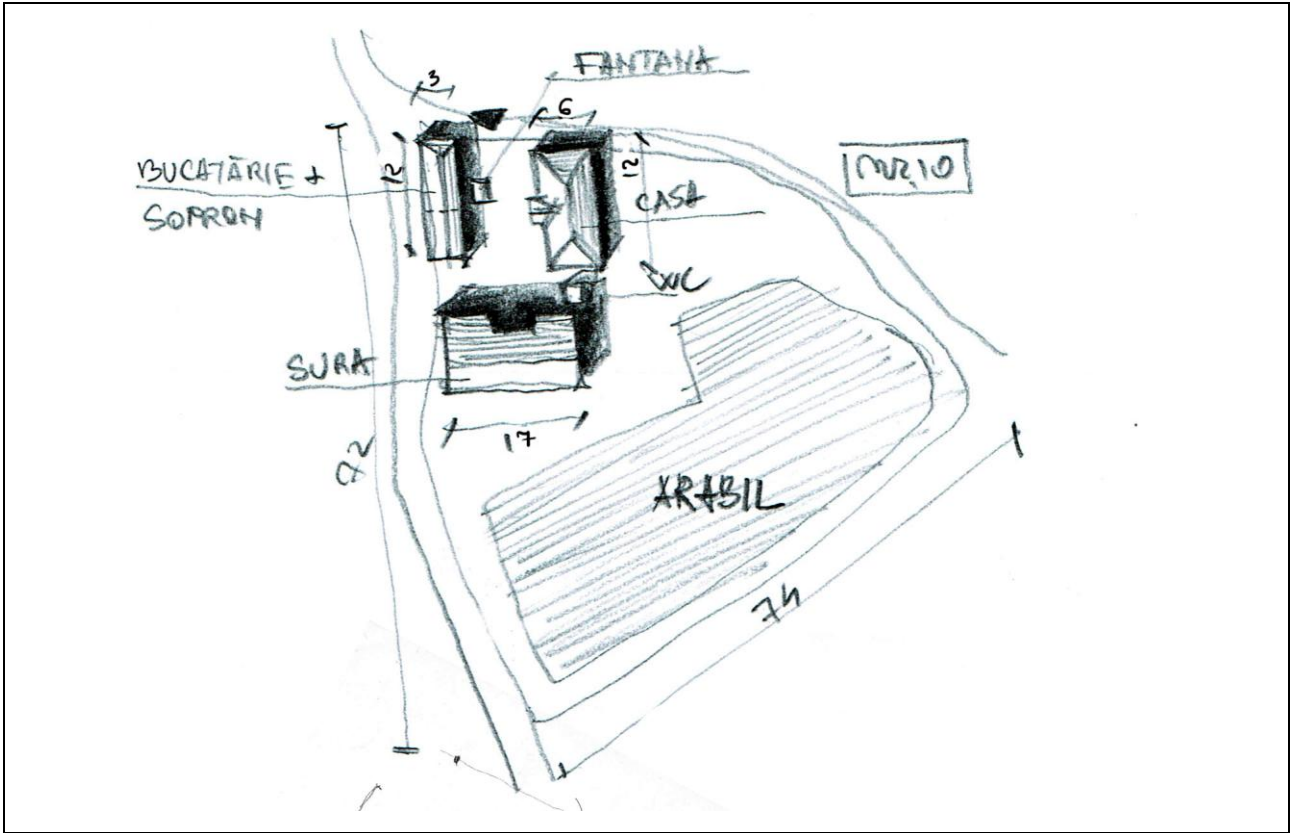 FANTANA
3
6
BUCATĂRIE +
SOPRON
12
12
NR.10
CASA
WC
SURA
17
92
ARABIL
74